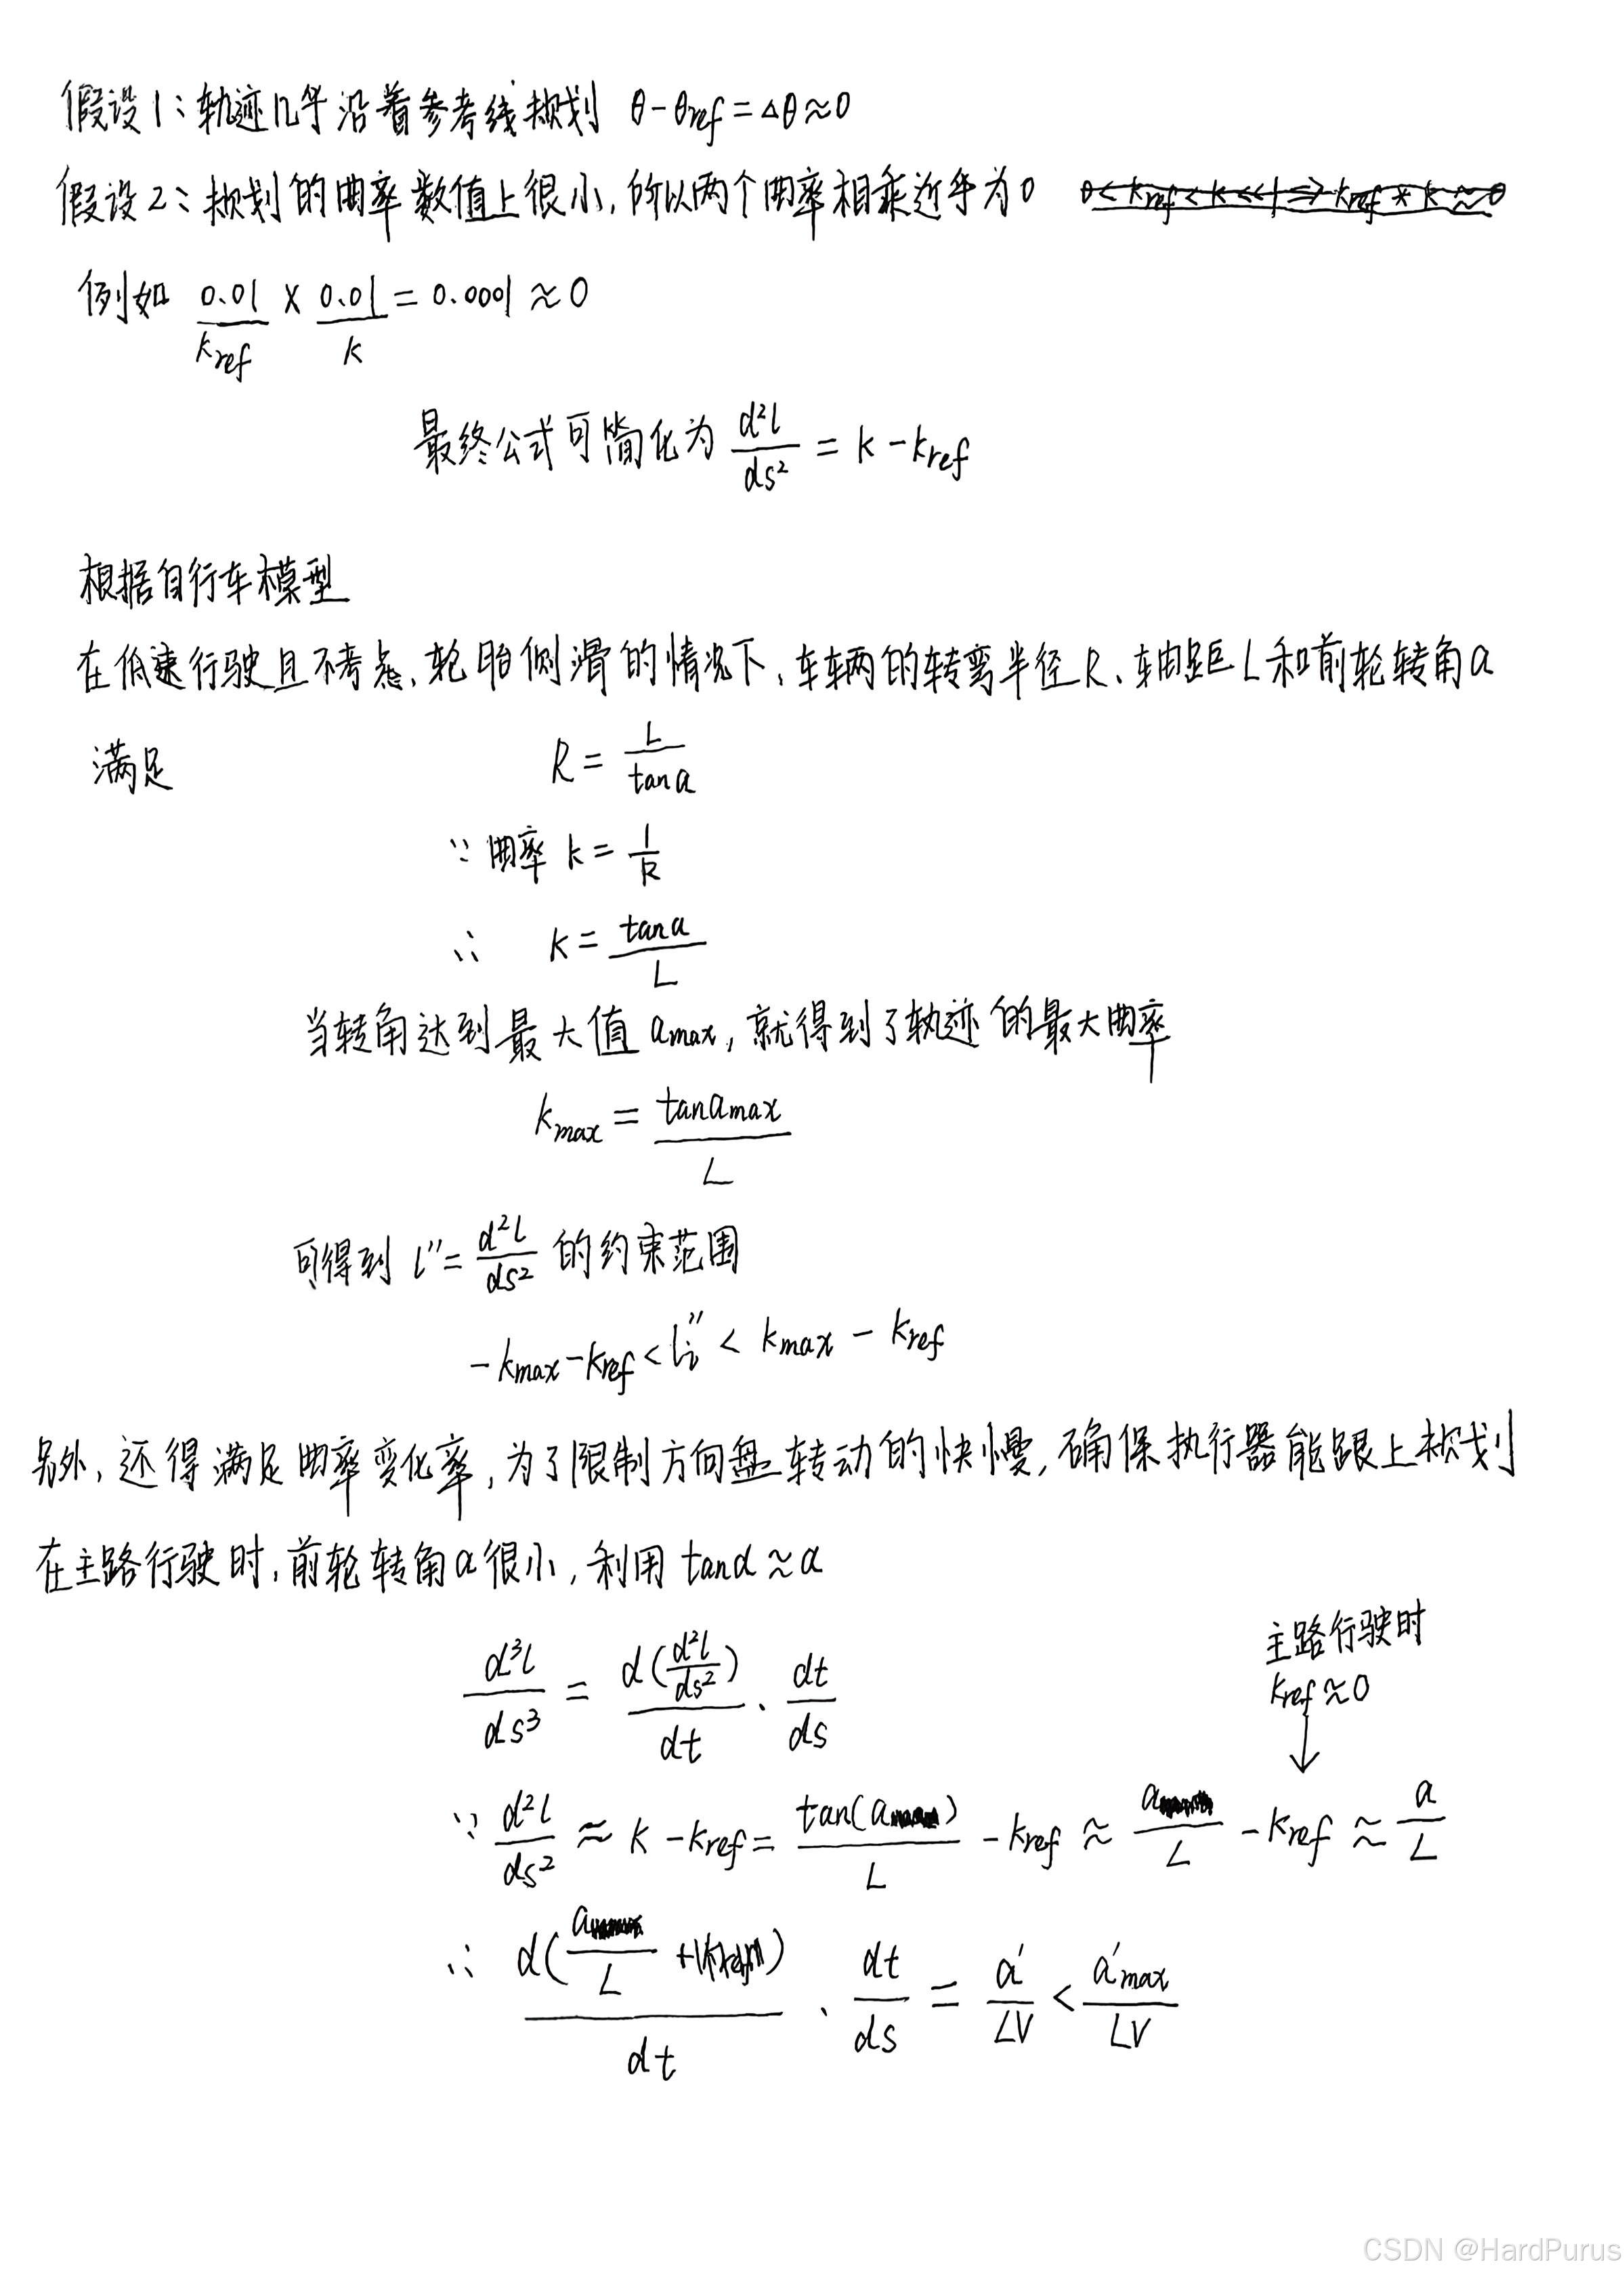 假设1：轨迹几乎沿着参考线规划 θ-θref=Δθ≈0
假设2：规划的曲率数值上很小，所以两个曲率相乘近乎为0 0<kref<k<<1⇒kref*k≈0
例如 0.01/kref × 0.01/k = 0.0001≈0
最终公式可简化为 d²l/ds² = k-kref
根据自行车模型
在低速行驶且不考虑，轮胎侧滑的情况下，车辆的转弯半径R、轴距L和前轮转角a
满足 R = L/tana
∵曲率 k = 1/R
∴ k = tana/L
当转角达到最大值 amax，就得到了轨迹的最大曲率
kmax = tanamax/L
可得到 l″= d²l/ds² 的约束范围
-kmax-kref<li″<kmax-kref
另外，还得满足曲率变化率，为了限制方向盘转动的快慢，确保执行器能跟上规划
在主路行驶时，前轮转角a很小，利用 tanα≈α
主路行驶时
kref≈0
d³l/ds³ = d(d²l/ds²)/dt · dt/ds
∵ d²l/ds² ≈ k-kref = tan(a)/L - kref ≈ a/L - kref ≈ a/L
∴ d(a/L)/dt · dt/ds = a′/LV < a′max/LV
CSDN @HardPurus